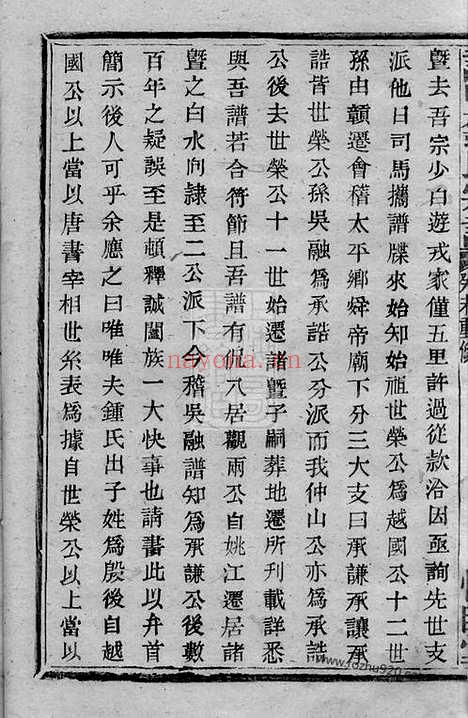 暨去吾宗少白遊戎家僅五里許過從款洽因亟詢先世支
派他日司馬攜譜牒來始知始祖世榮公爲越國公十二世
孫由贛遷會稽太平鄉舜帝廟下分三大支曰承謙承讓承
誥皆世榮公孫吳融爲承誥公分派而我仲山公亦爲承誥
公後去世榮公十一世始遷諸暨子嗣葬地遷所刊載詳悉
與吾譜若合符節且吾譜有仇八居觀兩公自姚江遷居諸
暨之白水向隷至二公派下今稽吳融譜知爲承謙公後數
百年之疑誤至是頓釋誠闔族一大快事也請書此以弁首
簡示後人可乎余應之曰唯唯夫鍾氏出子姓爲殷後自越
國公以上當以唐書宰相世系表爲據自世榮公以上當以
nayona.cn
www.fozhu920.com